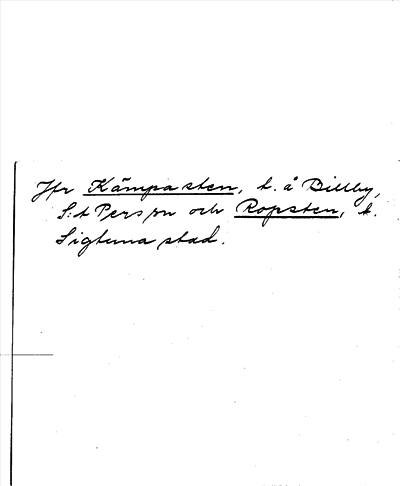 Jfr Kämpasten, t. å Billby,
S:t Pers sn och Ropsten, t.
Sigtuna stad.